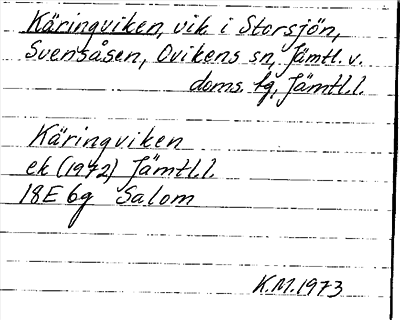 Käringviken, vik i Storsjön,
Svensåsen, Ovikens sn, Jämtl. v.
doms. tg, Jämtl.l.
Käringviken
ek (1972) Jämtl.l.
18E 6g Salom
K.M. 1973